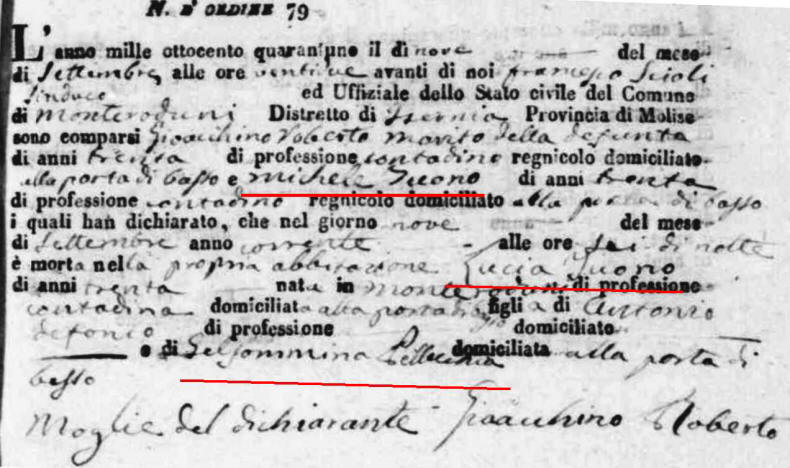 N. D' ORDINE 79
L' anno mille ottocento quarantuno il dì nove del mese
di Settembre, alle ore ventidue avanti di noi Francesco Scioli
Sindaco ed Uffiziale dello Stato civile del Comune
di Monteroduni Distretto di Isernia Provincia di Molise
sono comparsi Gioacchino Roberto marito della defunta
di anni trenta di professione contadino regnicolo domiciliato
alla porta di basso e Michele Iuono di anni trenta
di professione contadino regnicolo domiciliato alla porta di basso
i quali han dichiarato, che nel giorno nove del mese
di Settembre anno corrente alle ore sei di notte
è morta nella propria abbitazione Lucia Iuono
di anni trenta nata in Monteroduni di professione
contadina domiciliata alla porta di basso figlia di Antonio
di professione domiciliato
e di Gelsommina Pellecchia domiciliata alla porta di
basso
Moglie del dichiarante Gioacchino Roberto